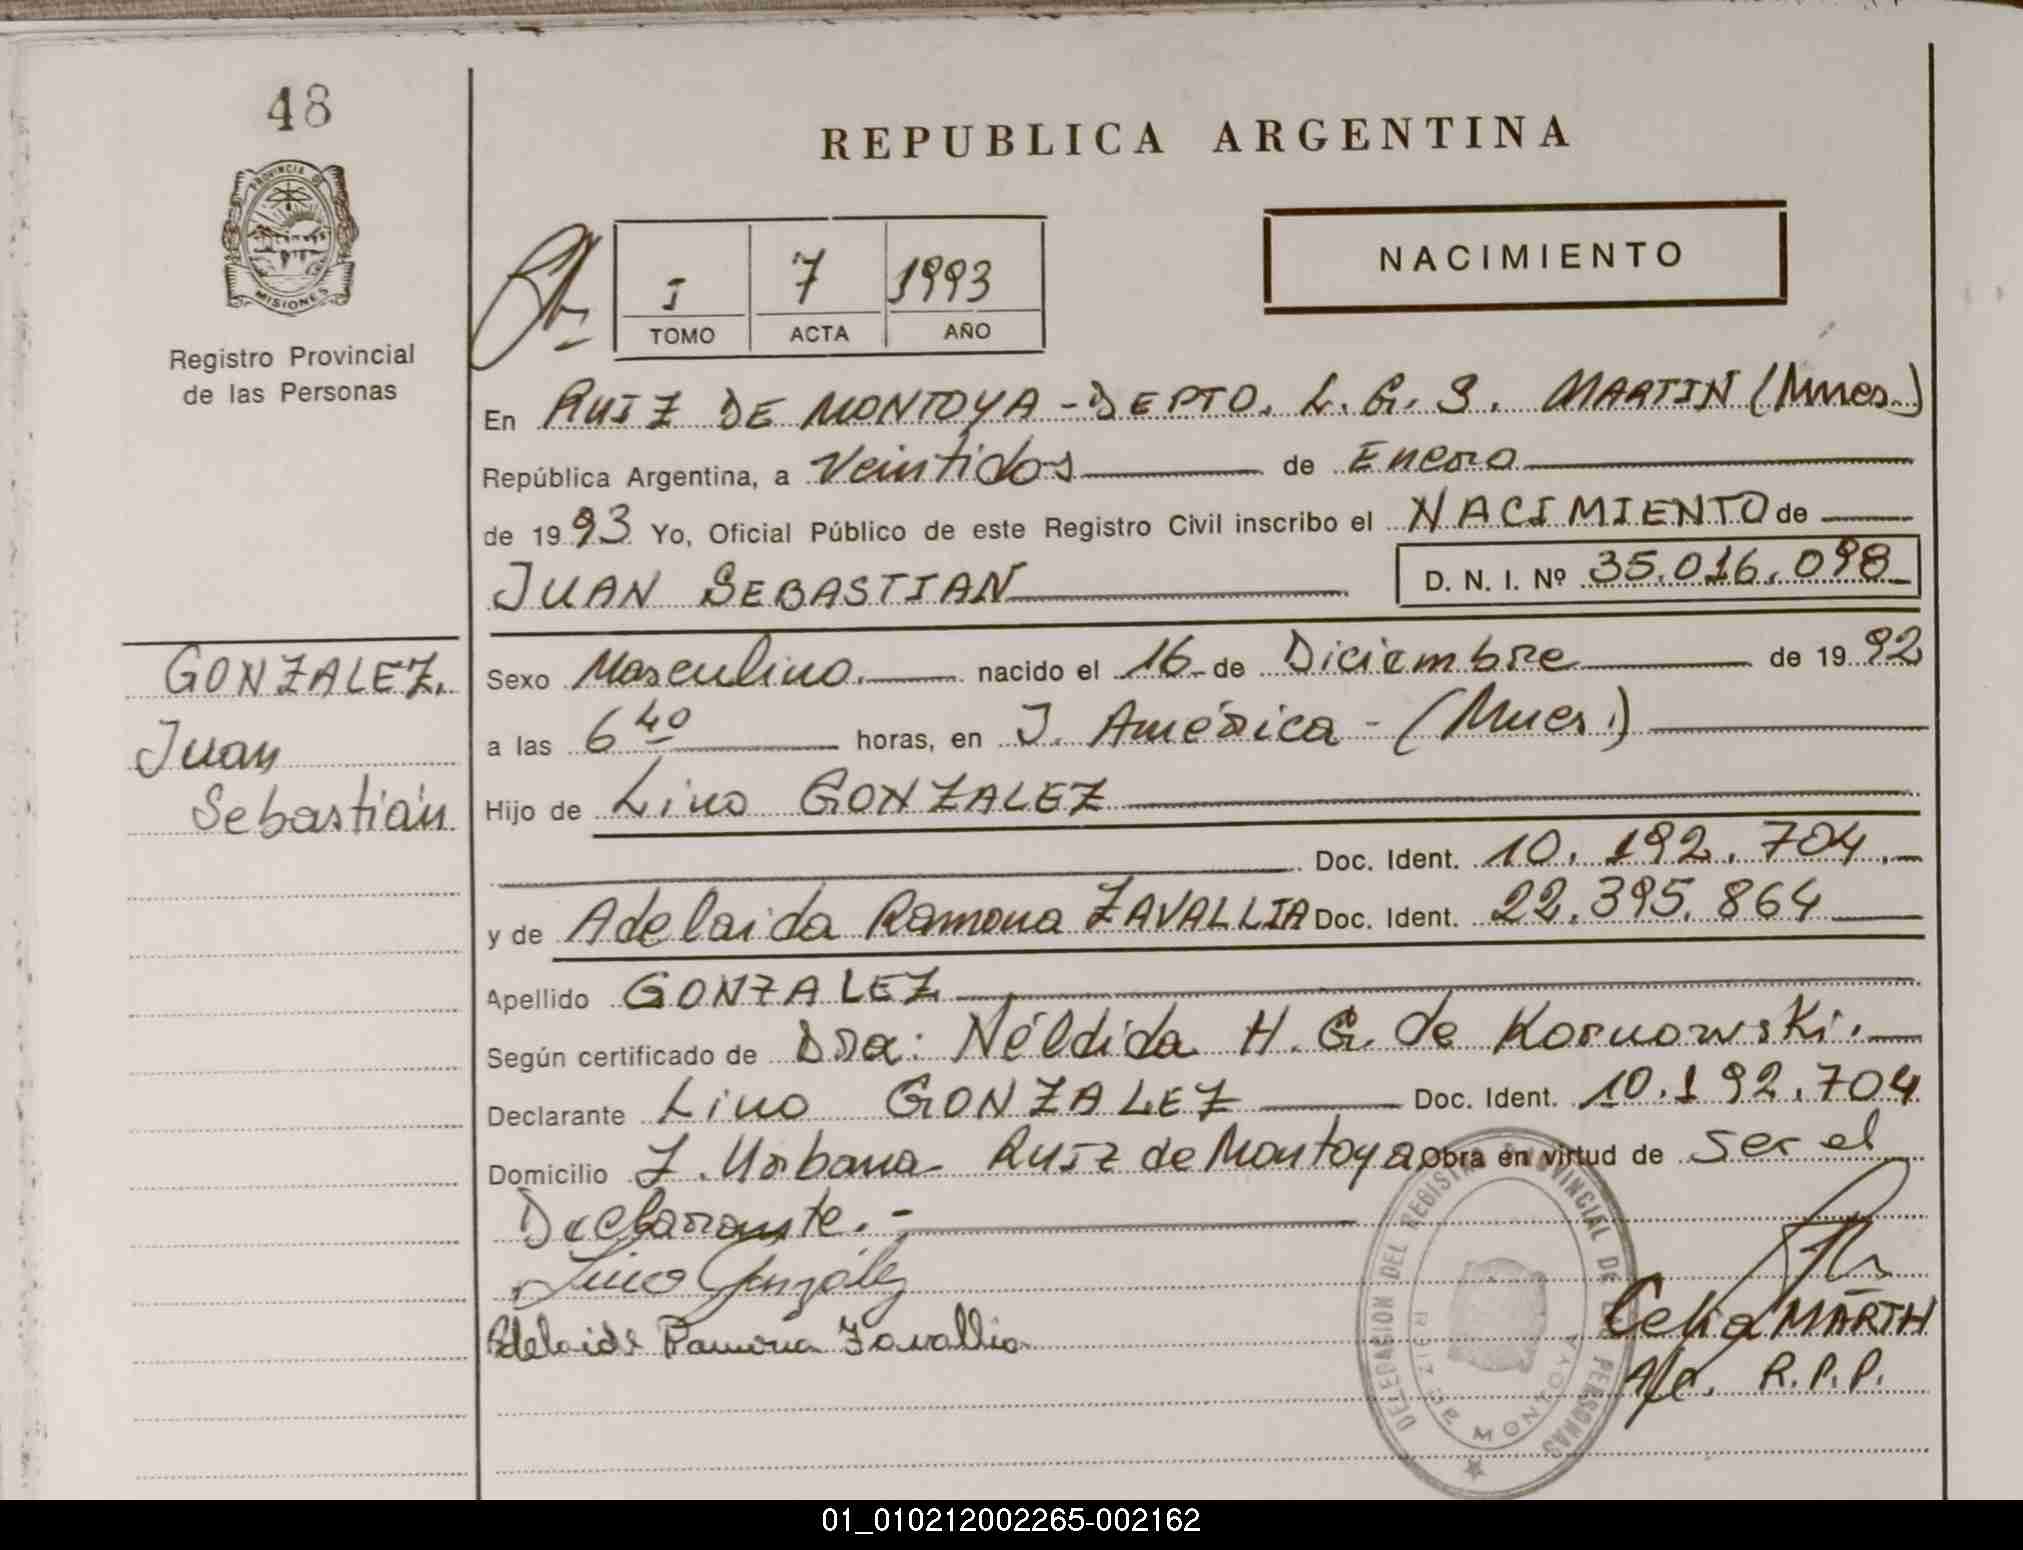 48
PROVINCIA DE
MISIONES
Registro Provincial
de las Personas
REPUBLICA ARGENTINA
NACIMIENTO
I 7 1993
TOMO ACTA AÑO
En RUIZ DE MONTOYA - DEPTO. L. G. S. MARTIN (Mnes.)
República Argentina, a Veintidos de Enero
de 1993 Yo, Oficial Público de este Registro Civil inscribo el NACIMIENTO de
JUAN SEBASTIAN D. N. I. Nº 35.016.098
GONZALEZ.
Juan
Sebastián
Sexo Masculino. nacido el 16 de Diciembre de 1992
a las 6 40 horas, en J. América - (Mnes.)
Hijo de Lino GONZALEZ
Doc. Ident. 10.192.704.
y de Adelaida Ramona ZAVALLIA Doc. Ident. 22.395.864
Apellido GONZALEZ
Según certificado de Dra: Néldida H. G. de Kornowski.
Declarante Lino GONZALEZ Doc. Ident. 10.192.704
Domicilio Z. Urbana - Ruiz de Montoya Obra en virtud de ser el
Declarante.-
Lino González
Adelaida Ramona Zavallia
Celia MARTH
A/c. R.P.P.
DELEGACION DEL REGISTRO PROVINCIAL DE LAS PERSONAS
RUIZ DE MONTOYA
01_010212002265-002162